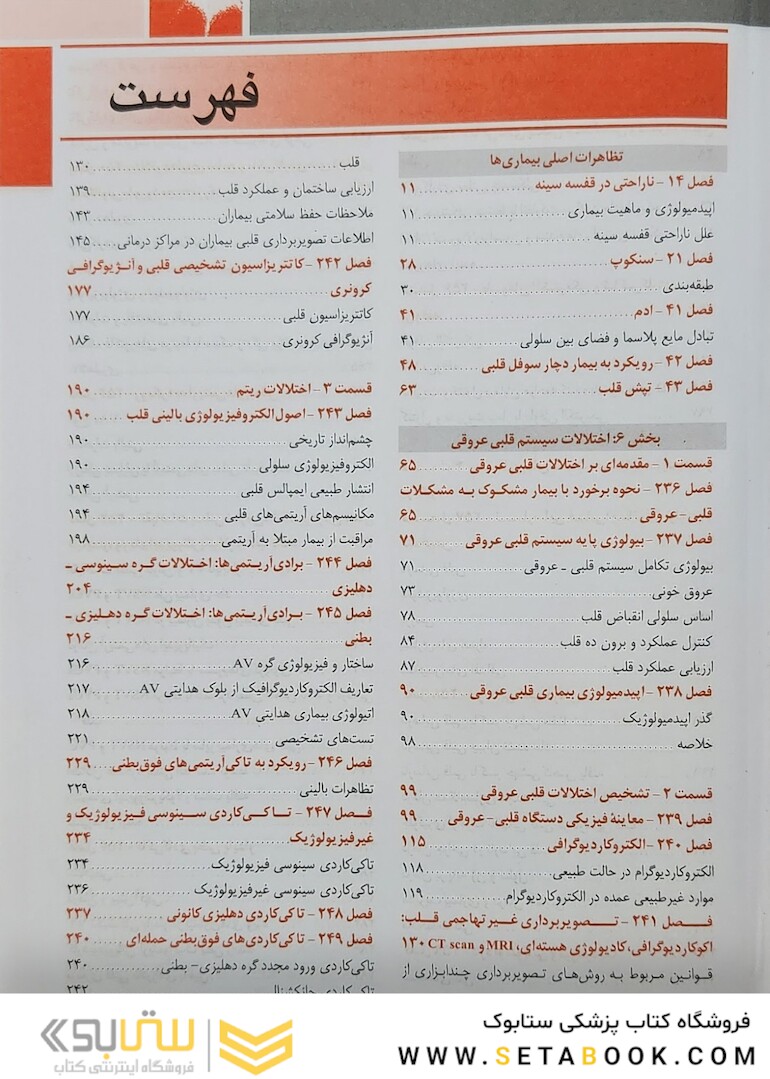 فهرست
تظاهرات اصلی بیماری‌ها
فصل ۱۴ - ناراحتی در قفسه سینه ۱۱
اپیدمیولوژی و ماهیت بیماری ۱۱
علل ناراحتی قفسه سینه ۱۱
فصل ۲۱ - سنکوپ ۲۸
طبقه‌بندی ۳۰
فصل ۴۱ - ادم ۴۱
تبادل مایع پلاسما و فضای بین سلولی ۴۱
فصل ۴۲ - رویکرد به بیمار دچار سوفل قلبی ۴۸
فصل ۴۳ - تپش قلب ۶۳
بخش ۶: اختلالات سیستم قلبی عروقی
قسمت ۱ - مقدمه‌ای بر اختلالات قلبی عروقی ۶۵
فصل ۲۳۶ - نحوه برخورد با بیمار مشکوک به مشکلات
قلبی - عروقی ۶۵
فصل ۲۳۷ - بیولوژی پایه سیستم قلبی عروقی ۷۱
بیولوژی تکامل سیستم قلبی ـ عروقی ۷۱
عروق خونی ۷۳
اساس سلولی انقباض قلب ۷۸
کنترل عملکرد و برون ده قلب ۸۴
ارزیابی عملکرد قلب ۸۷
فصل ۲۳۸ - اپیدمیولوژی بیماری قلبی عروقی ۹۰
گذر اپیدمیولوژیک ۹۰
خلاصه ۹۸
قسمت ۲ - تشخیص اختلالات قلبی عروقی ۹۹
فصل ۲۳۹ - معاینهٔ فیزیکی دستگاه قلبی - عروقی ۹۹
فصل ۲۴۰ - الکتروکاردیوگرافی ۱۱۵
الکتروکاردیوگرام در حالت طبیعی ۱۱۸
موارد غیرطبیعی عمده در الکتروکاردیوگرام ۱۱۹
فصل ۲۴۱ - تصویربرداری غیر تهاجمی قلب:
اکوکاردیوگرافی، کادیولوژی هسته‌ای، MRI و CT scan ۱۳۰
قوانین مربوط به روش‌های تصویربرداری چندابزاری از
قلب ۱۳۰
ارزیابی ساختمان و عملکرد قلب ۱۳۹
ملاحظات حفظ سلامتی بیماران ۱۴۳
اطلاعات تصویربرداری قلبی بیماران در مراکز درمانی ۱۴۵
فصل ۲۴۲ - کاتتریزاسیون تشخیصی قلبی و آنژیوگرافی
کرونری ۱۷۷
کاتتریزاسیون قلبی ۱۷۷
آنژیوگرافی کرونری ۱۸۶
قسمت ۳ - اختلالات ریتم ۱۹۰
فصل ۲۴۳ - اصول الکتروفیزیولوژی بالینی قلب ۱۹۰
چشم‌انداز تاریخی ۱۹۰
الکتروفیزیولوژی سلولی ۱۹۰
انتشار طبیعی ایمپالس قلبی ۱۹۴
مکانیسم‌های آریتمی‌های قلبی ۱۹۴
مراقبت از بیمار مبتلا به آریتمی ۱۹۸
فصل ۲۴۴ - برادی‌آریتمی‌ها: اختلالات گره سینوسی ـ
دهلیزی ۲۰۴
فصل ۲۴۵ - برادی‌آریتمی‌ها: اختلالات گره دهلیزی ـ
بطنی ۲۱۶
ساختار و فیزیولوژی گره AV ۲۱۶
تعاریف الکتروکاردیوگرافیک از بلوک هدایتی AV ۲۱۷
اتیولوژی بیماری هدایتی AV ۲۱۸
تست‌های تشخیصی ۲۲۱
فصل ۲۴۶ - رویکرد به تاکی‌آریتمی‌های فوق‌بطنی ۲۲۹
تظاهرات بالینی ۲۲۹
فصل ۲۴۷ - تاکی‌کاردی سینوسی فیزیولوژیک و
غیرفیزیولوژیک ۲۳۴
تاکی‌کاردی سینوسی فیزیولوژیک ۲۳۴
تاکی‌کاردی سینوسی غیرفیزیولوژیک ۲۳۶
فصل ۲۴۸ - تاکی‌کاردی دهلیزی کانونی ۲۳۷
فصل ۲۴۹ - تاکی‌کاردی‌های فوق‌بطنی حمله‌ای ۲۴۰
تاکی‌کاردی ورود مجدد گره دهلیزی - بطنی ۲۴۰
تاکی‌کاردی جانکشنال ۲۴۲
فروشگاه کتاب پزشکی ستابوک
WWW.SETABOOK.COM
ستابوک
فروشگاه اینترنتی کتاب